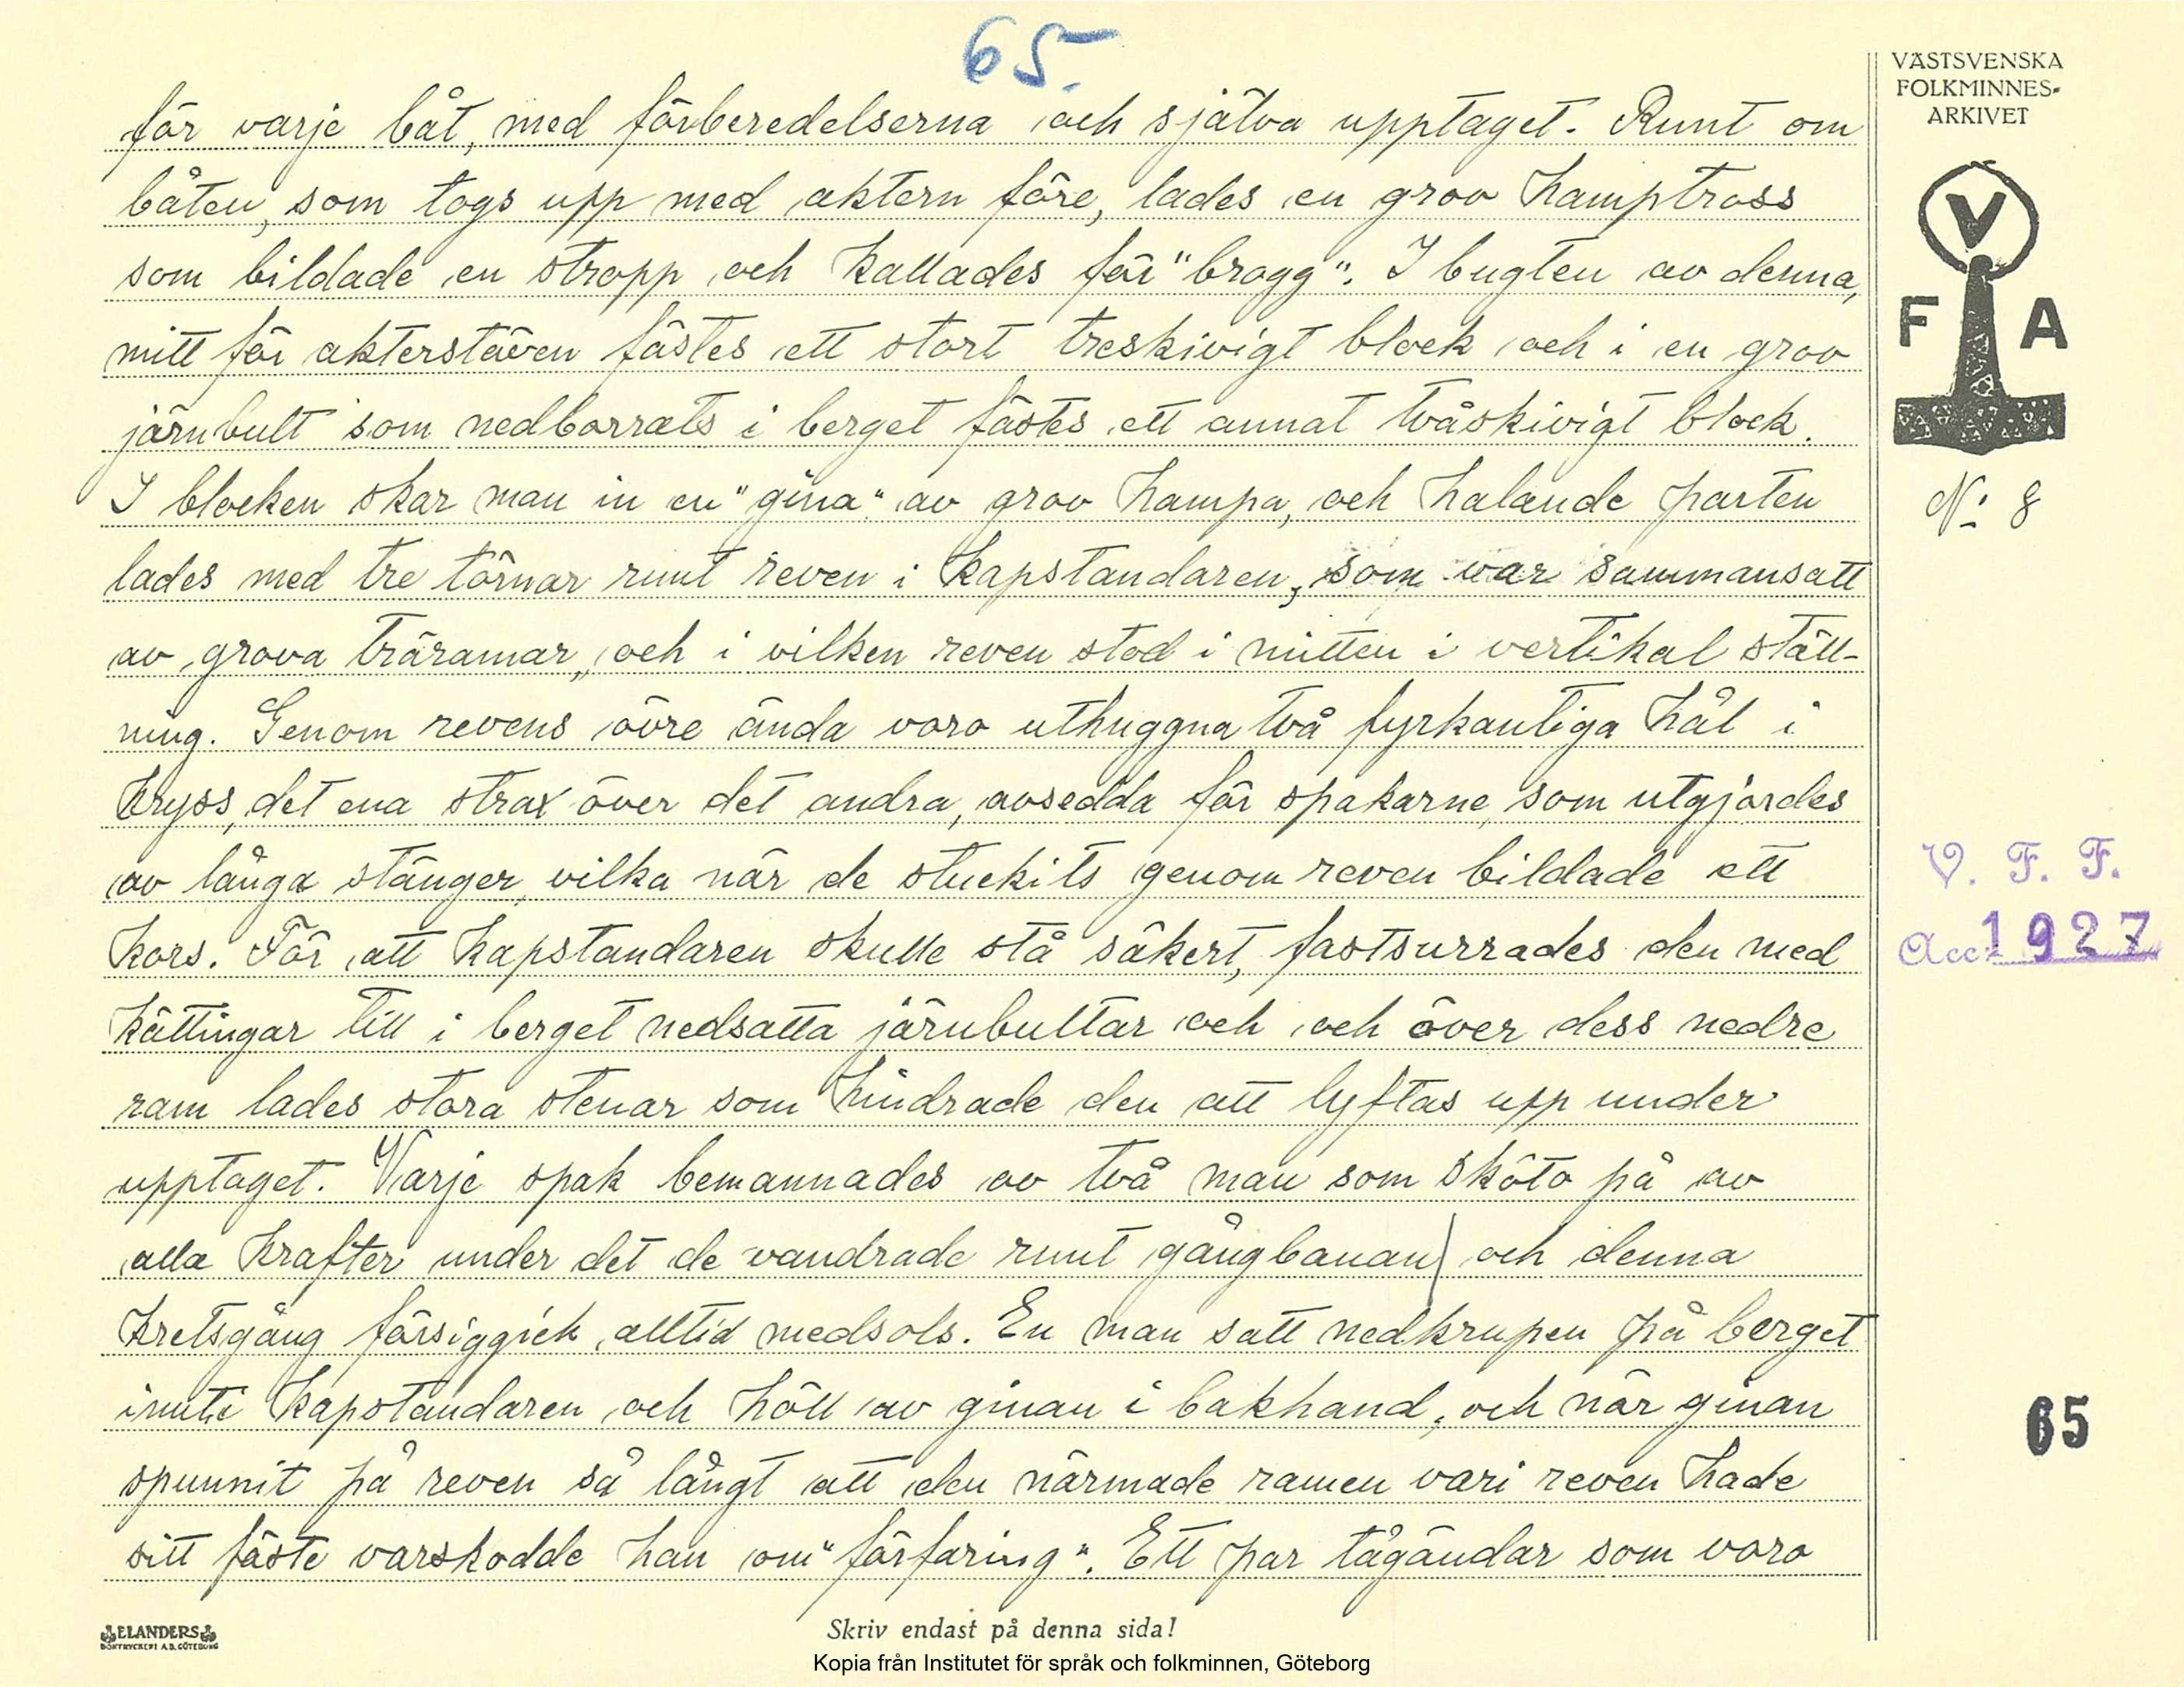 65.
för varje båt, med förberedelserna och själva upptaget. Runt om
båten, som togs upp med aktern före, lades en grov hamptross
som bildade en stropp och kallades för "brogg". I bugten av denna,
mitt för akterstäven fästes ett stort treskivigt block och i en grov
järnbult som nedborrats i berget fästes ett annat tvåskivigt block.
I blocken skar man in en "gina" av grov hampa, och halande parten
lades med tre törnar runt reven i kapstandaren, som var sammansatt
av grova träramar, och i vilken reven stod i mitten i vertikal ställ-
ning. Genom revens övre ända voro uthuggna två fyrkantiga hål i
kryss, det ena strax över det andra, avsedda för spakarne, som utgjordes
av långa stänger, vilka när de stuckits genom reven bildade ett
kors. För att kapstandaren skulle stå säkert, fastsurrades den med
kättingar till i berget nedsatta järnbultar och och över dess nedre
ram lades stora stenar som hindrade den att lyftas upp under
upptaget. Varje spak bemannades av två man som sköto på av
alla krafter under det de vandrade runt gångbanan och denna
kretsgång försiggick alltid medsols. En man satt nedkrupen på berget
inuti kapstandaren och höll av ginan i bakhand, och när ginan
spunnit på reven så långt att den närmade ramen vari reven hade
sitt fäste varskodde han om "förfaring". Ett par tågändar som voro
VÄSTSVENSKA
FOLKMINNES-
ARKIVET
V
F A
N: 8
V. F. F.
Acc. 1927
65
ELANDERS
BOKTRYCKERI A.B. GÖTEBORG
Skriv endast på denna sida!
Kopia från Institutet för språk och folkminnen, Göteborg